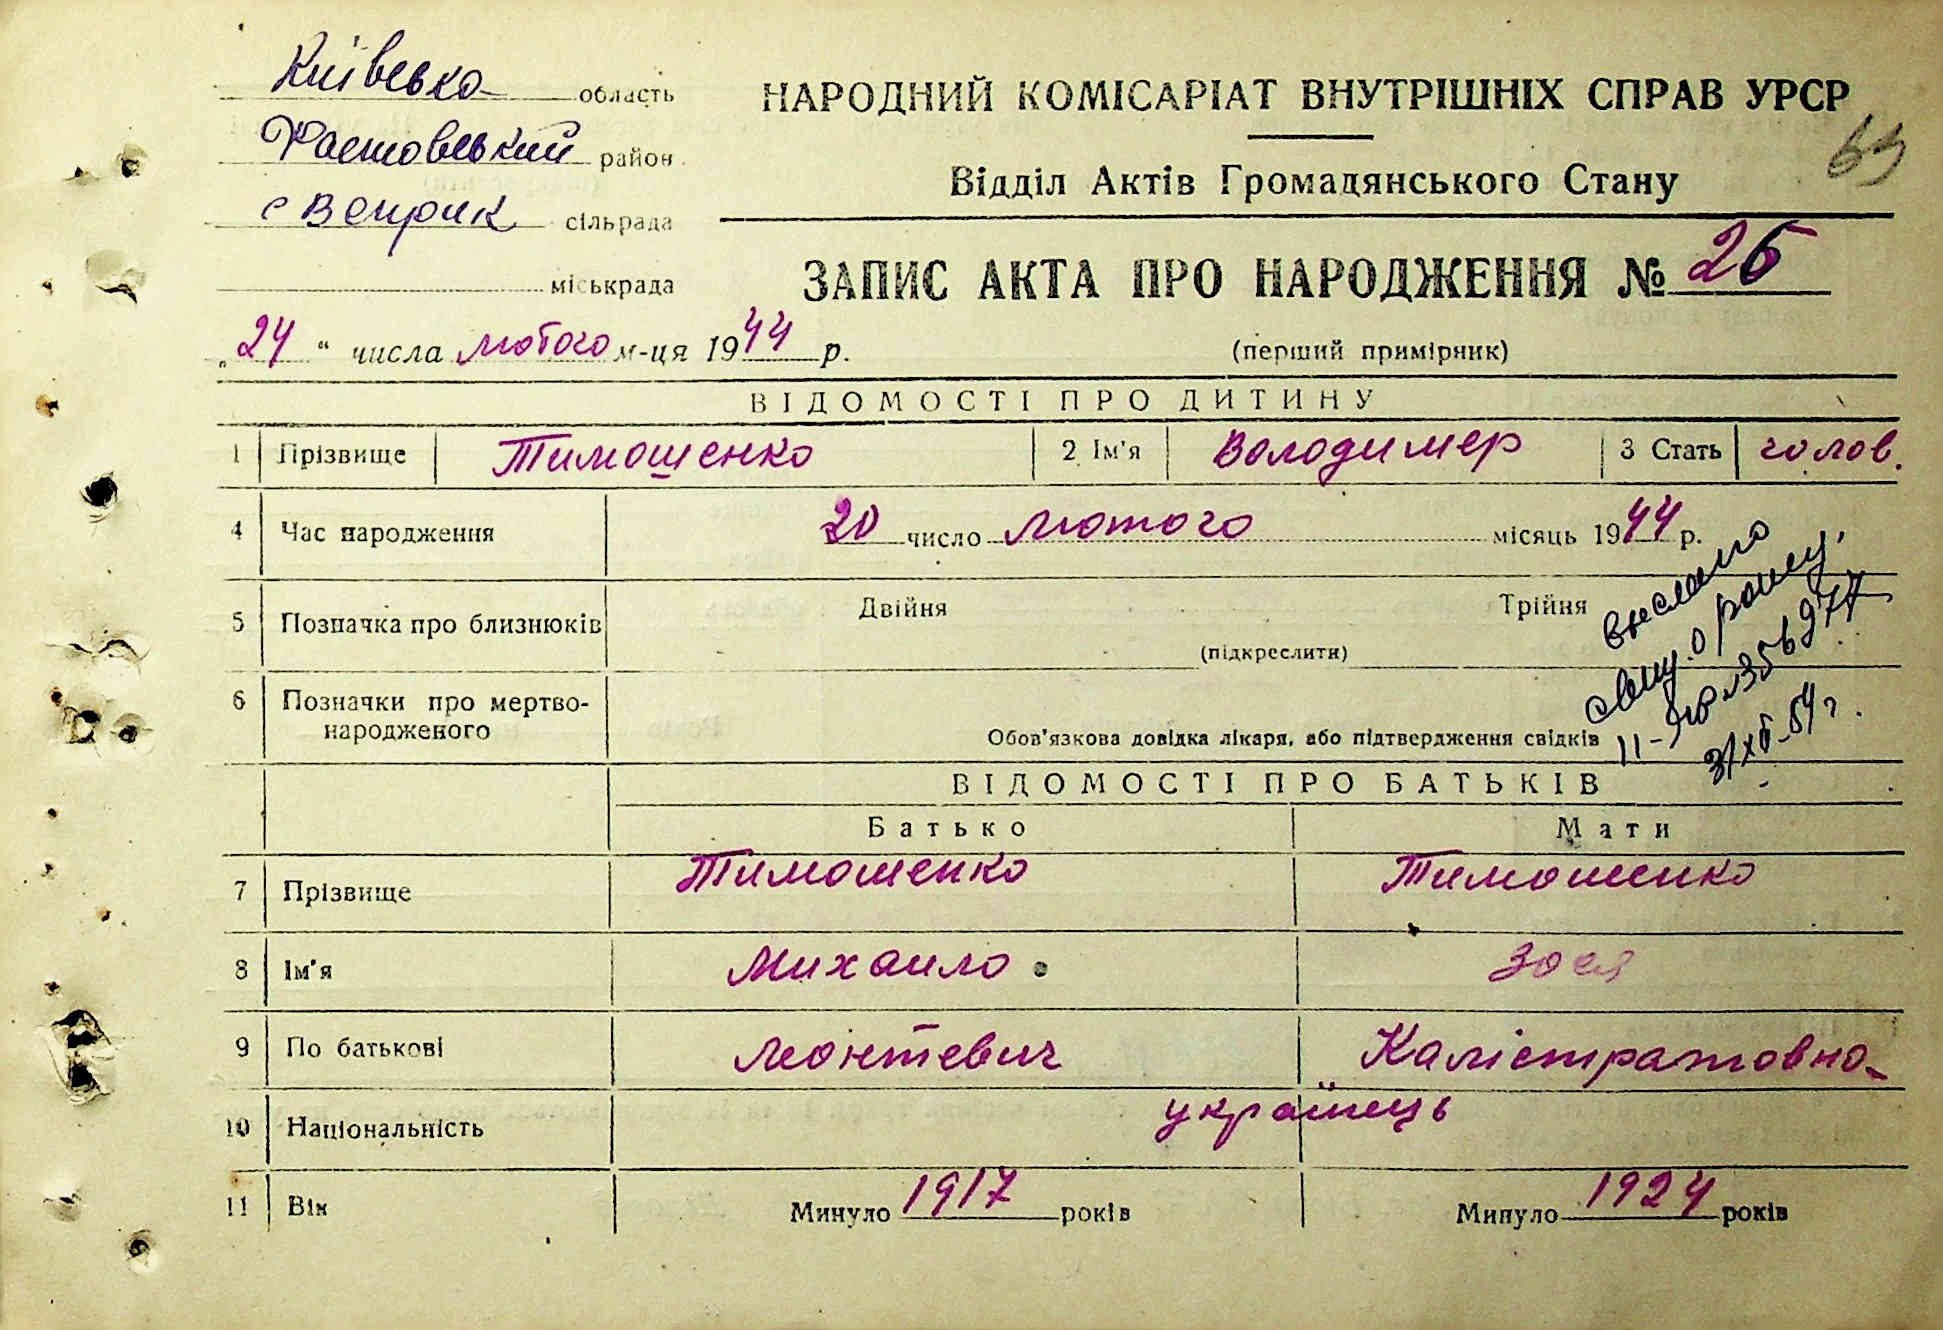 Київська область
Фастовський район
с Веприк сільрада
міськрада
НАРОДНИЙ КОМІСАРІАТ ВНУТРІШНІХ СПРАВ УРСР
Відділ Актів Громадянського Стану
ЗАПИС АКТА ПРО НАРОДЖЕННЯ № 26
„24“ числа лютого м-ця 1944 р.
(перший примірник)
ВІДОМОСТІ ПРО ДИТИНУ
1 Прізвище Тимошенко 2 Ім'я Володимер 3 Стать чолов.
4 Час народження 20 число лютого місяць 1944 р.
5 Позначка про близнюків Двійня Трійня
(підкреслити)
6 Позначки про мертво-
народженого
Обов'язкова довідка лікаря, або підтвердження свідків
выслано
свид. о рожд.
31 XII-54 г.
ВІДОМОСТІ ПРО БАТЬКІВ
Батько Мати
7 Прізвище Тимошенко Тимошенко
8 Ім'я Михаило Зося
9 По батькові Леонтевич Калістратовна
10 Національність українець
11 Вік Минуло 1917 років Минуло 1924 років